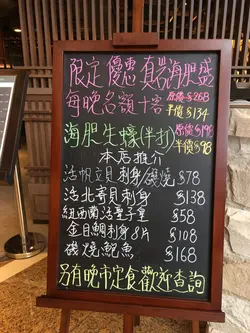 限定優惠真裝海膽盛
每晚名額十客 原價$268
半價$134
海膽生蠔(半打) 原價$196
半價$98
本店推介
活帆立貝刺身/磯燒 $78
活北寄貝刺身 $138
紐西蘭活童子蠔 $58
金目鯛刺身8片 $108
磯燒鮑魚 $168
另有晚市定食歡迎查詢